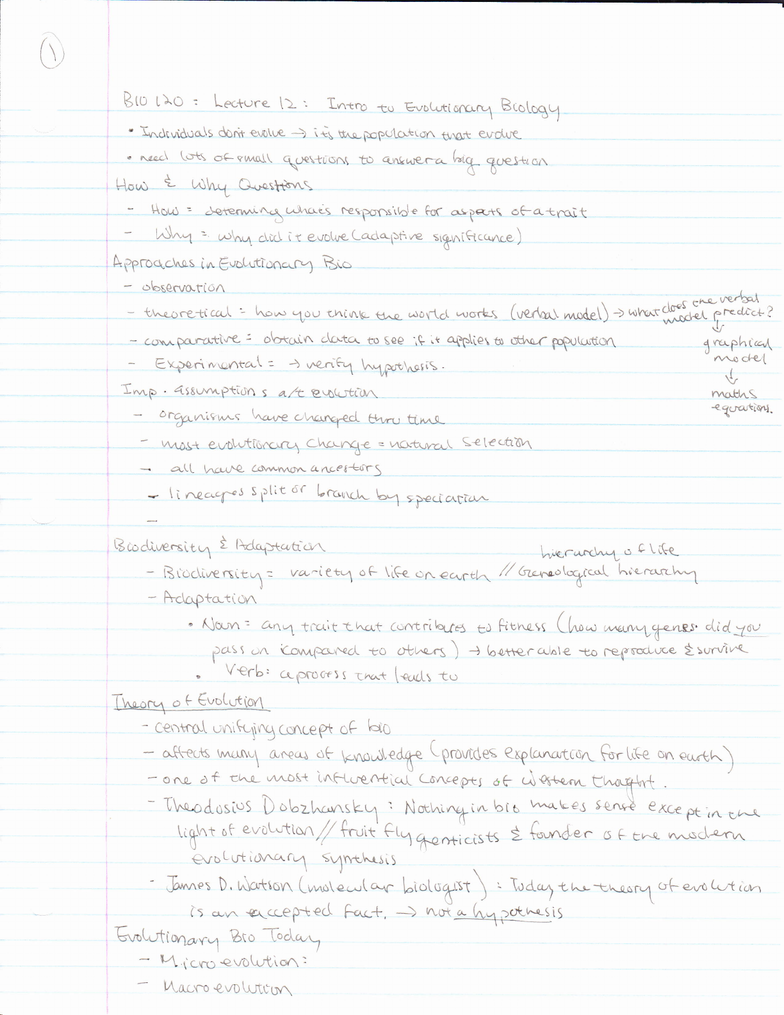 1
Bio 120 : Lecture 12 : Intro to Evolutionary Biology
• Individuals don't evolve → it's the population that evolve
• need lots of small questions to answer a big question
How & Why Questions
- How = determing what's responsible for aspects of a trait
- Why = why did it evolve (adaptive significance)
Approaches in Evolutionary Bio
- observation
- theoretical = how you think the world works (verbal model) → what does the verbal
model predict?
↓
graphical
model
↓
maths
equations.
- comparative = obtain data to see if it applies to other population
- Experimental = → verify hypothesis.
Imp. assumptions a/t evolution
- organisms have changed thru time
- most evolutionary change = natural selection
- all have common ancestors
- lineages split or branch by speciation
-
Biodiversity & Adaptation
hierarchy of life
- Biodiversity = variety of life on earth // Geneological hierarchy
- Adaptation
• Noun = any trait that contributes to fitness (how many genes did you
pass on compared to others) → better able to reproduce & survive
• Verb: a process that leads to
Theory of Evolution
- central unifying concept of bio
- affects many areas of knowledge (provides explanation for life on earth)
- one of the most influential concepts of western thought.
- Theodosius Dobzhansky : Nothing in bio makes sense except in the
light of evolution // fruit fly genticists & founder of the modern
evolutionary synthesis
- James D. Watson (molecular biologist) : Today, the theory of evolution
is an accepted fact. → not a hypothesis
Evolutionary Bio Today
- Micro evolution:
- Macro evolution